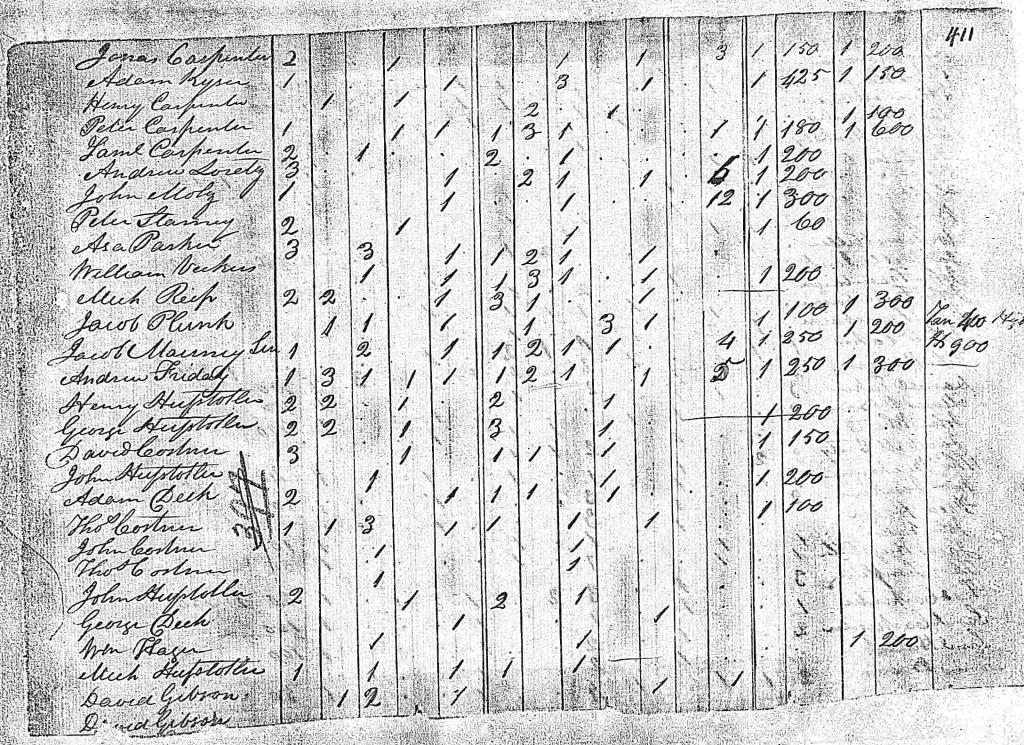 411
Jonas Carpenter 2 1 1 1 3 1 150 1 200
Adam Kyser 1 1 3 1 1 425 1 150
Henry Carpenter 1 1 2 1 1 100
Peter Carpenter 1 1 1 1 3 1 1 1 180 1 600
Saml Carpenter 2 1 2 1 1 200
Andrew 3 1 2 1 1 6 1 200
John 1 1 1 12 1 300
Peter Starney 2 1 1 1 60
Asa Parker 3 3 1 1 2 1 1
William 1 1 1 3 1 1 1 200
Mich Reep 2 2 1 3 1 1 1 100 1 300
Jacob Plunk 1 1 1 1 3 1 1 250 1 200 Tan 400
Jacob Mauney Sen 1 2 1 1 2 1 1 4 1 250 900
Andrew Friday 1 3 1 1 1 1 2 1 1 5 1 250 1 300
Henry Hufstotler 2 2 1 2 1 1 200
George Hufstotler 2 2 1 3 1 1 150
David Costner 3 1 1 1 1
John Hufstotler 1 1 1 200
Adam Deck 2 1 1 1 1 1 100
Thos Costner 1 1 3 1 1 1 1
John Costner 1 1
Thos Costner 1 1
John Hufstotler 2 1 2 1
George Deck 1 1
Wm Hager 1 1 1 200
Mich Hufstotler 1 1 1 1 1
David Gibson 1 2 1 1 1
David Gibson